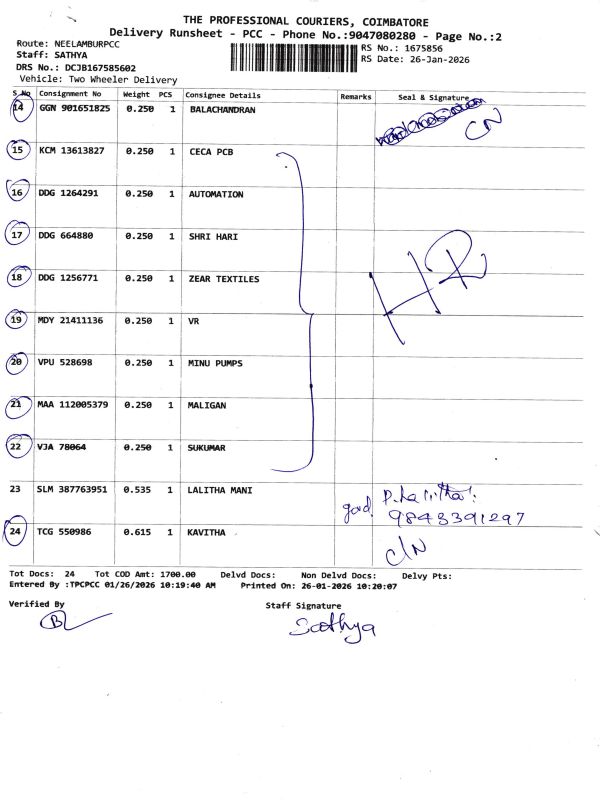 THE PROFESSIONAL COURIERS, COIMBATORE
Delivery Runsheet - PCC - Phone No.:9047080280 - Page No.:2
Route: NEELAMBURPCC
Staff: SATHYA
RS No.: 1675856
RS Date: 26-Jan-2026
DRS No.: DCJB167585602
Vehicle: Two Wheeler Delivery
S No Consignment No Weight PCS Consignee Details Remarks Seal & Signature
14 GGN 901651825 0.250 1 BALACHANDRAN CN
15 KCM 13613827 0.250 1 CECA PCB
16 DDG 1264291 0.250 1 AUTOMATION
17 DDG 664880 0.250 1 SHRI HARI
HR
18 DDG 1256771 0.250 1 ZEAR TEXTILES
19 MDY 21411136 0.250 1 VR
20 VPU 528698 0.250 1 MINU PUMPS
21 MAA 112005379 0.250 1 MALIGAN
22 VJA 78064 0.250 1 SUKUMAR
23 SLM 387763951 0.535 1 LALITHA MANI P. Lalitha
9843391297
24 TCG 550986 0.615 1 KAVITHA C/N
Tot Docs: 24 Tot COD Amt: 1700.00 Delvd Docs: Non Delvd Docs: Delvy Pts:
Entered By :TPCPCC 01/26/2026 10:19:40 AM Printed On: 26-01-2026 10:20:07
Verified By Staff Signature
B Sathya